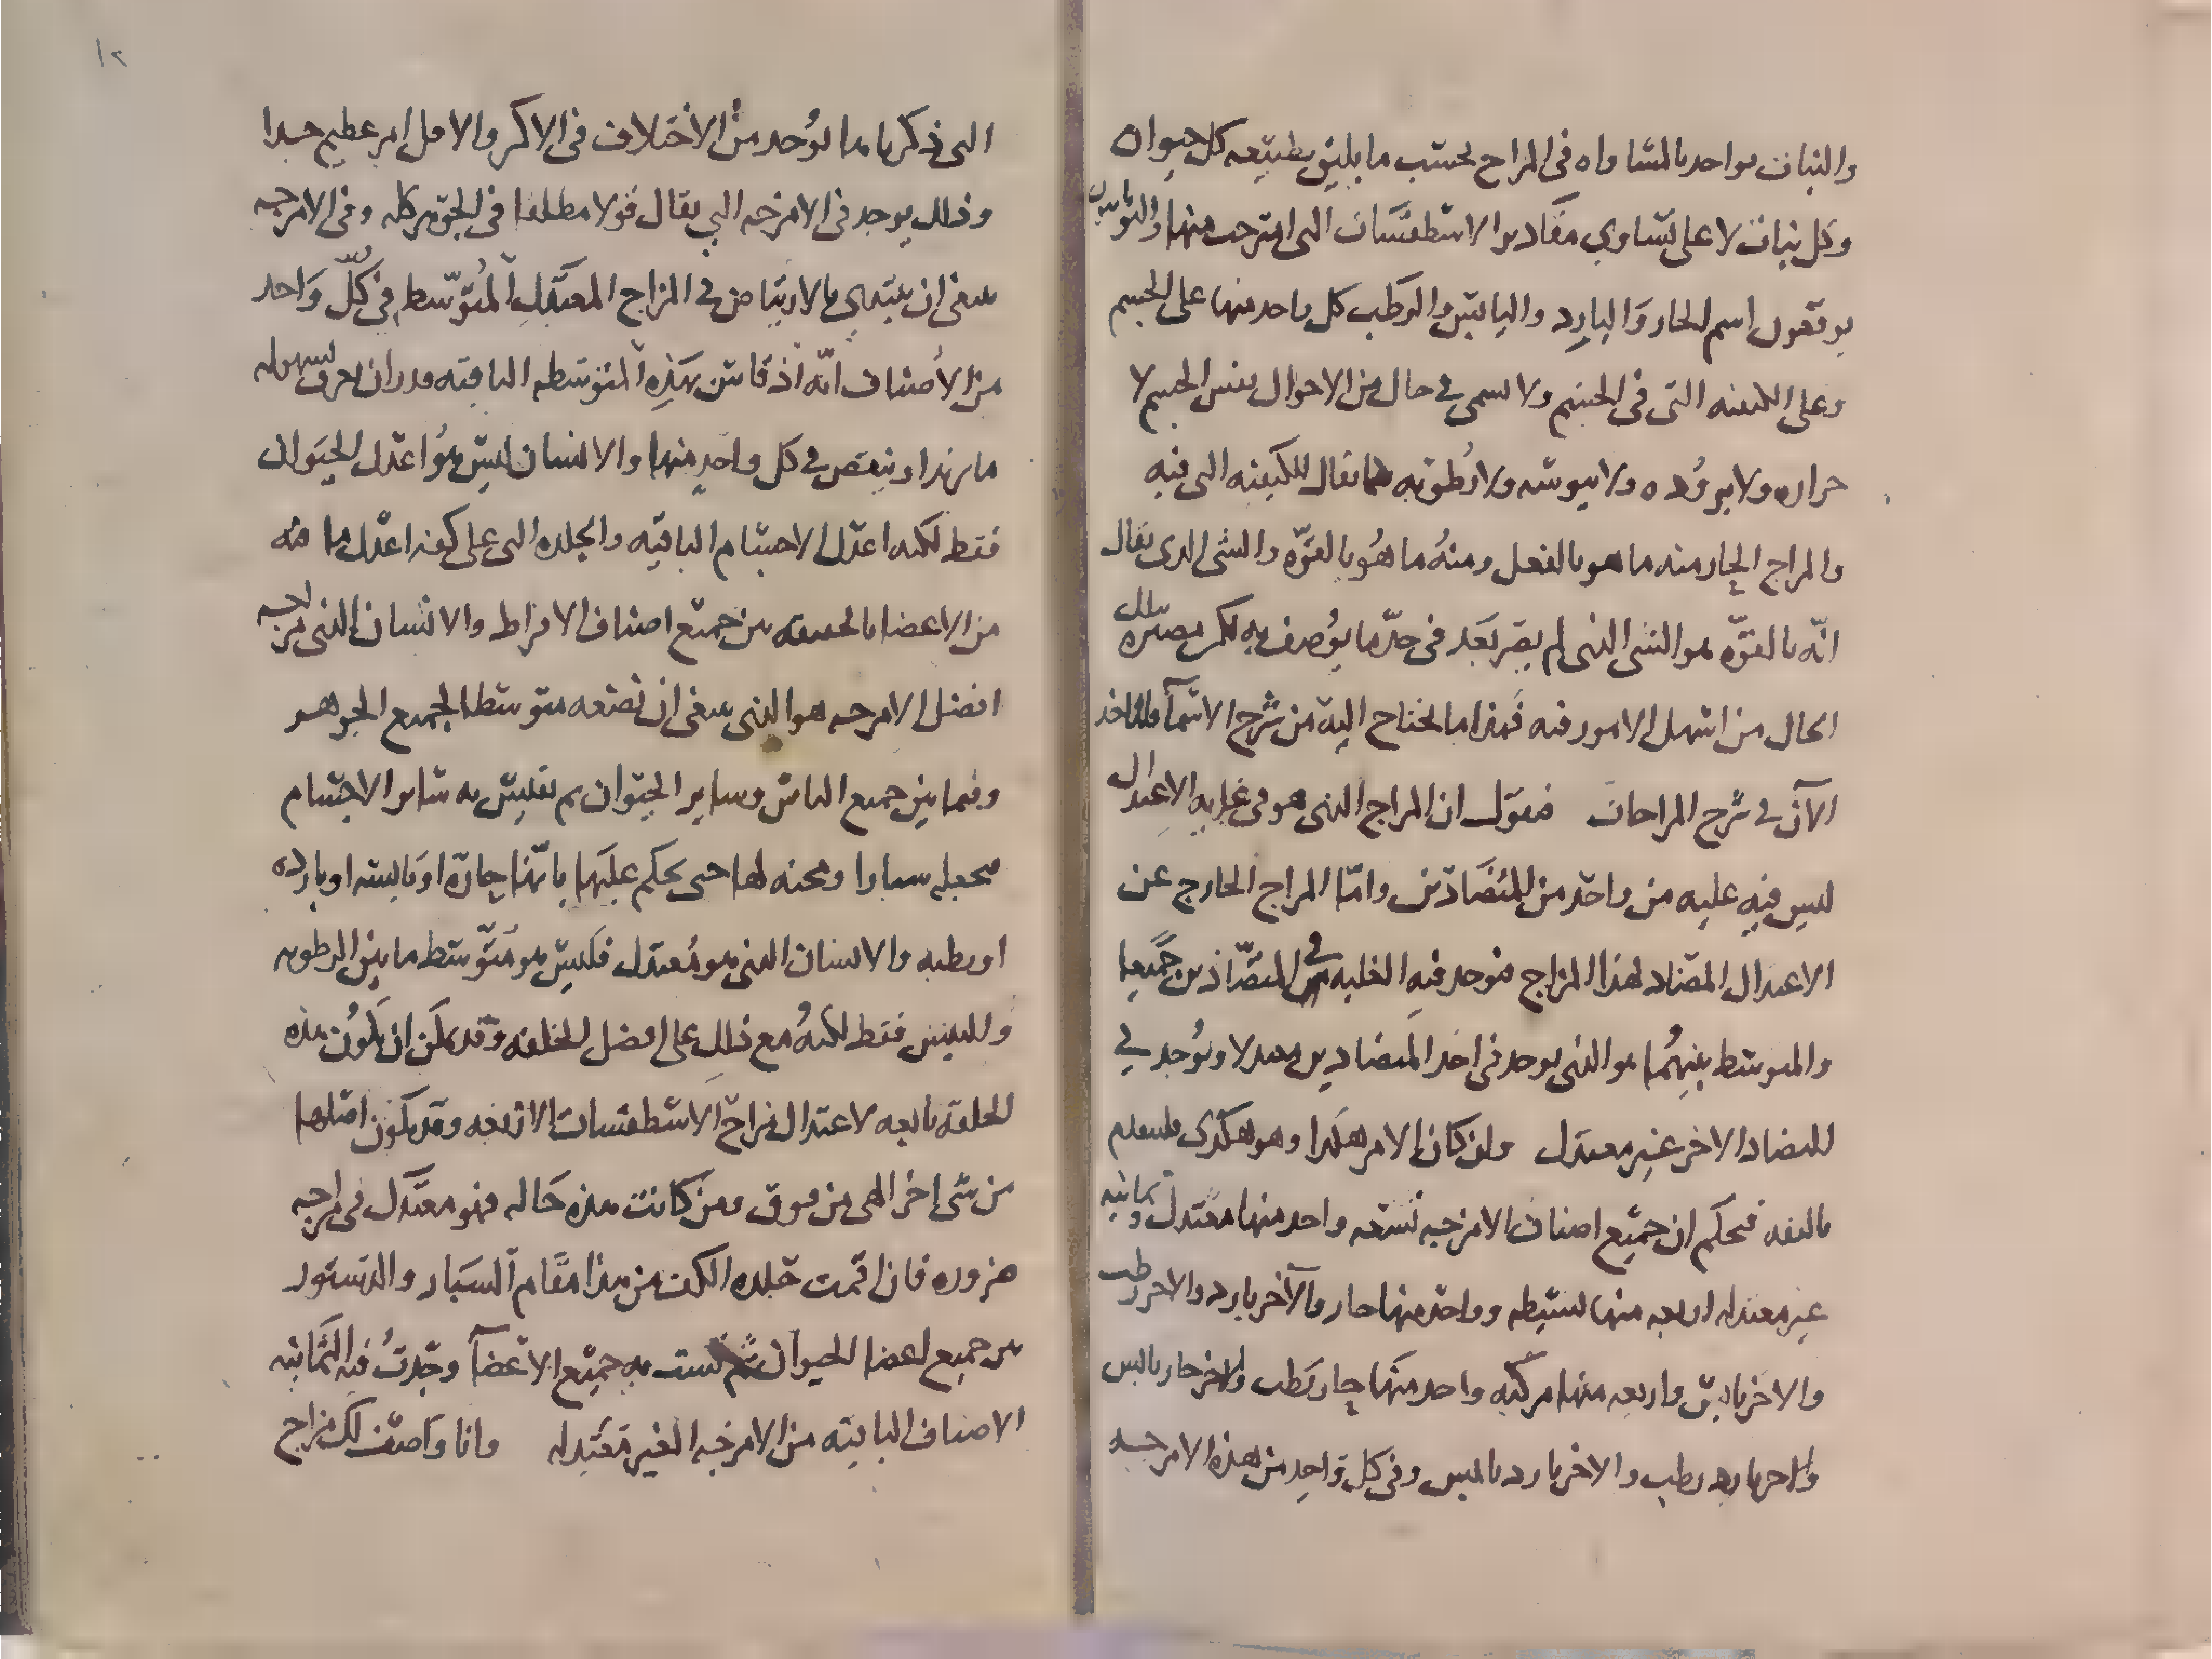 والنبات يواحد بالمساواه في المزاج بحسب ما يليق بطبيعه كل حيوان
وكل نبات لا على تساوي مقادير الاسطقسات التى امتزجت منها
يوقعون اسم الحار والبارد واليابس والرطب كل واحد منها على الجسم
وعلى الكيفيه التى فى الجسم ولا يسمى في حال من الاحوال نفس الجسم لا
حراره ولا بروده ولا يبوسه ولا رطوبه كما يقال للكيفيه التى فيه
والمزاج الحار منه ما هو بالفعل ومنه ما هو بالقوّه والشى الذى يقال
انّه بالقوّه هو الشى الذى لم يصر بعد فى حدّ ما يوصف به لكن مصيره الى تلك
الحال من اسهل الامور فيه فهذا ما يحتاج اليه من شرح الاسمآ فلناخذ
الآن في شرح المزاجات فنقول ان المزاج الذى هو فى غايه الاعتدال
ليس فيه غلبه من واحد من المتضادين وامّا المزاج الخارج عن
الاعتدال المضاد لهذا المزاج فتوجد فيه الغلبه في المتضّادين جميعا
والمتوسط بينهما هو الذى يوجد فى احد المتضادين معتدلا ويوجد في
المضاد الاخر غير معتدل وان كان الامر هكذا وهو هكذى فلنعلم
بالثقه فنحكم ان جميع اصناف الامزجه تسعه واحد منها معتدل وثمانيه
غير معتدله اربعه منها بسيطه وواحد منها حار والآخر بارد والاخر رطب
والاخر يابس واربعه منها مركبه واحد منها حار رطب والاخر حار يابس
والاخر بارد رطب والاخر بارد يابس وفى كل واحد من هذه الامزجه
١٢
التى ذكرنا ما يوجد من الاختلاف فى الاكثر والاقل امر عظيم جدا
وذلك يوجد فى الامزجه التى يقال قولا مطلقا فى الجوهر كله وفى الامزجه
ينبغى ان يبتدى بالارتياض في المزاج المعتدل المتوسّط في كلّ واحد
من الاصناف انّه اذ قاس بهذه المتوسطه الباقيه قدر ان يعرف بسهوله
ما يزيد او ينقص في كل واحد منها والانسان ليس هو اعدل الحيوان
فقط لكنه اعدل الاجسام الباقيه والجلده التى على كفه اعدل ما فيه
من الاعضا بالحقيقه من جميع اصناف الافراط والانسان الذى مزاجه
افضل الامزجه هو الذى ينبغى ان تضعه متوسطا لجميع الجوهر
وفيما بين جميع الناس وساير الحيوان ثم تقيس به ساير الاجسام
فتجعله سبارا ومحنه لها حتى يحكم عليها بانّها حارّه او يابسه او بارده
او رطبه والانسان الذى هو معتدل فليس هو متوسط ما بين الرطوبه
واليبس فقط لكنه مع ذلك على افضل الخلقه وقد يمكن ان يكون هذه
الخلقه تابعه لاعتدال مزاج الاسطقسات الاربعه وقد يكون اصلها
من شى اخر الهى من فوق ومن كانت هذه حاله فهو معتدل فى مزاجه
ضروره فان اقمت جلده الكف من هذا مقام السبار والدستور
من جميع اعضا الحيوان ثم قست به جميع الاعضآ وجدت فيه الثمانيه
الاصناف الباقيه من الامزجه الغير معتدله وانا واصف لك مزاج